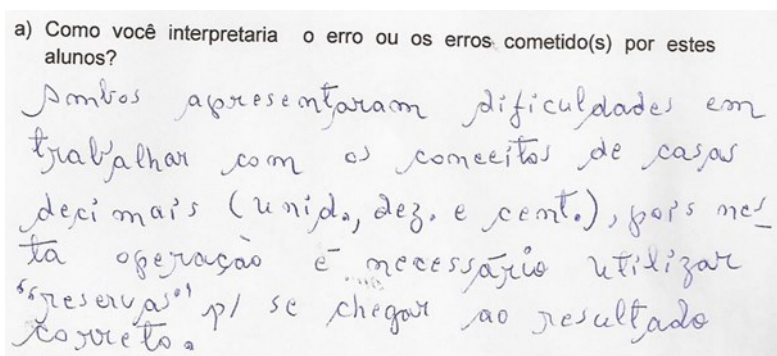 a) Como você interpretaria o erro ou os erros cometido(s) por estes
alunos?
Ambos apresentaram dificuldades em
trabalhar com os conceitos de casas
decimais (unid., dez. e cent.), pois nes
ta operação é necessário utilizar
"reservas" p/ se chegar ao resultado
correto.